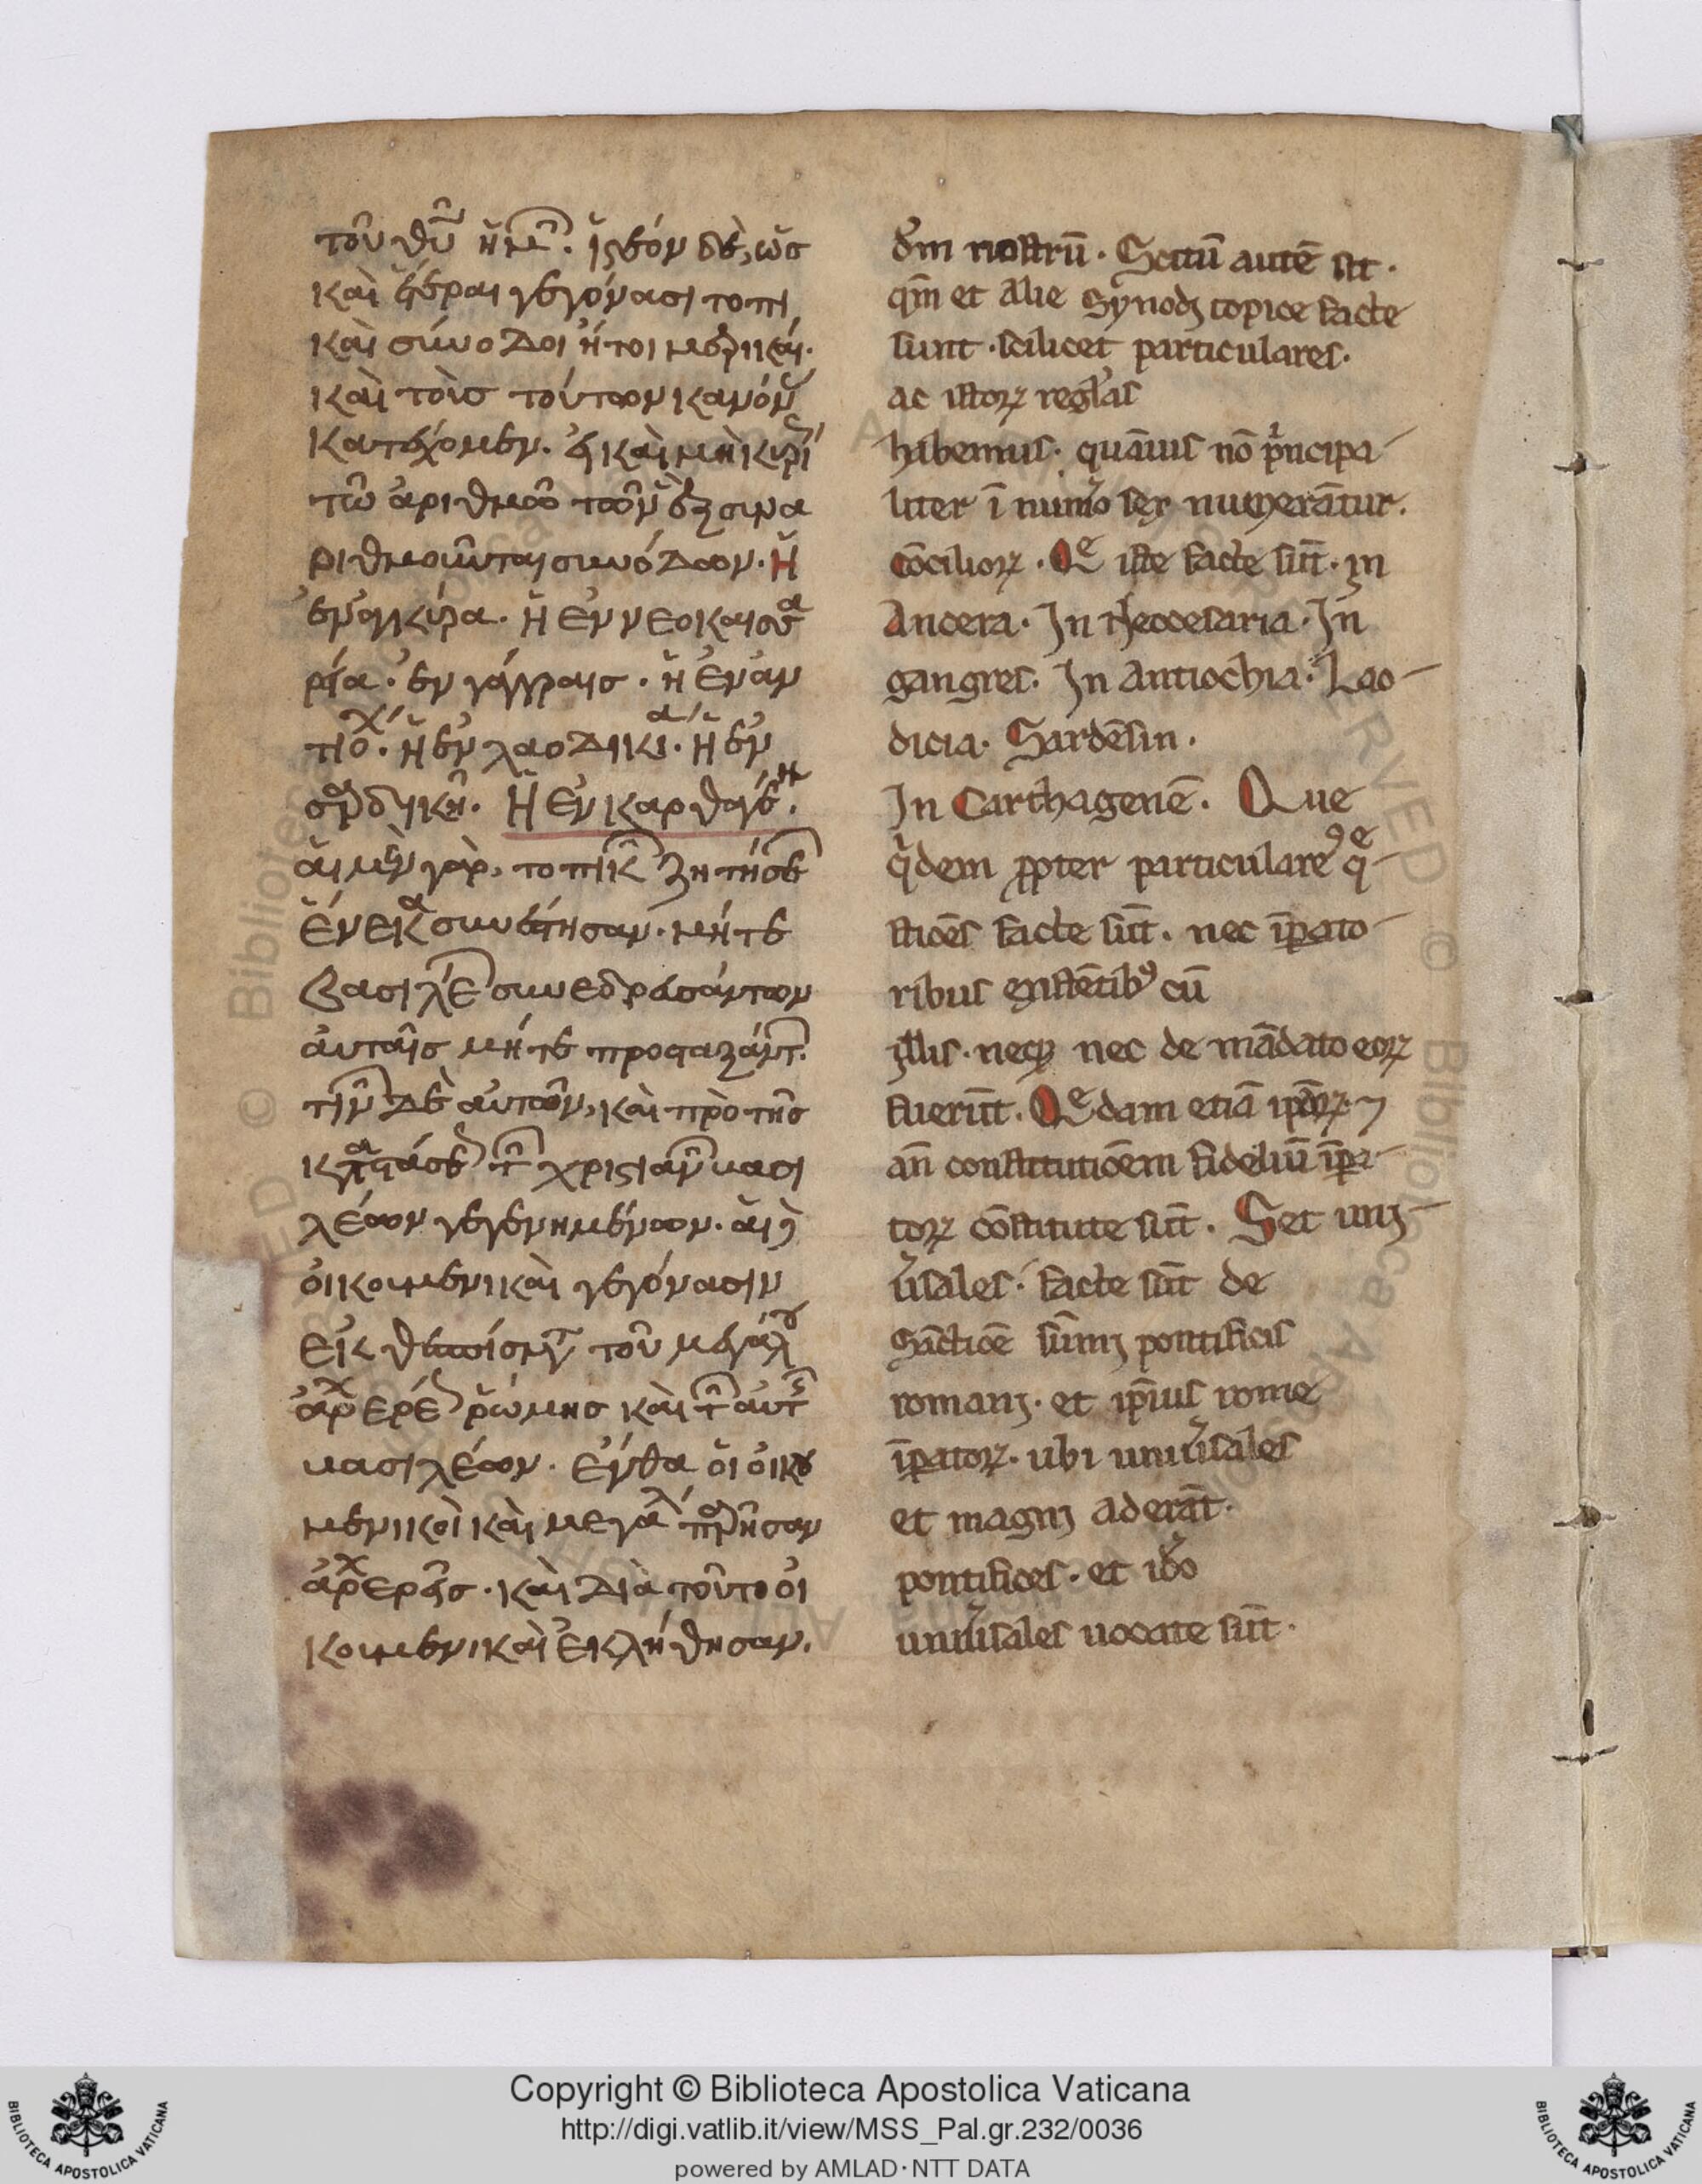 τοῦ θῦ ἡμῶ. ἰστέον δὲ, ὡς
καὶ ἕτεραι γεγόνασι τοπι
καὶ σύνοδοι ἤτοι μερικαί.
καὶ τοῖς τούτων κανόν
κατεχόμεν. εἰ καὶ μὴ κυρί
τῶ ἀριθμῶ τῶν ἓξ συνα
ριθμοῦνται συνόδων. Ἡ
ἐν ἀγκύρα. ἡ ἐν νεοκαισα
ρεία. ἐν γάγγραις. ἡ ἐν ἀν
τιοχ. ἡ ἐν λαοδικεία. ἡ ἐν
σαρδικῆ. Ἡ ἐν καρθαγένη.
αἱ μὲν γὰρ, τοπικῶν ζητήσε
ἕνεκα συνέστησαν. μήτε
βασιλέ συνεδρασάντων
αὐταῖς μήτε προσταξάντ.
τιν δὲ αὐτῶν, καὶ πρὸ τῆς
καταστάσε τ χριστιαν βασι
λέων γεγενημένων. αἱ δ
οἰκουμενικαὶ γεγόνασιν
ἐκ θεσπίσματ τοῦ μεγάλου
ἀρχερέ ῥώμης καὶ τ αὐτ
βασιλέων. ἔνθα οἱ οἰκου
μενικοὶ καὶ μεγάλ παρῆσαν
ἀρχερεῖς. καὶ διὰ τοῦτο οἰ
κουμενικαὶ ἐκλήθησαν.
dm nostrū. Scitū autē sit.
qm̄ et alie Synodi topice facte
sunt. scilicet particulares.
ac istorꝝ regłis
hibemus. quāuis nō pncipa
liter ī numo sex numerātur.
cōciliorꝝ. Qe iste facte sūt. in
Ancera. In Neocesaria. In
gangres. In antiochia. Lao
dicia. Sardēsin.
In Carthagenē. Que
qdem ppter particulareꝰ qe
stiōes facte sūt. nec īpato
ribus existētibꝰ cū
illis. neqꝫ nec de mādato eorꝝ
fuerūt. Qedam etiā ip̄orꝝ
an̄ constitutiōem fideliū īpa
torꝝ cōstitute sūt. Set uni
uʼsales. facte sūt de
Sāctiōe sūmi pontificis
romani. et ip̄ius rome
īpatorꝝ. ubi uniuʼsales
et magni aderāt.
pontifices. et ido
uniuʼsales uocate sūt.
Copyright © Biblioteca Apostolica Vaticana
http://digi.vatlib.it/view/MSS_Pal.gr.232/0036
powered by AMLAD·NTT DATA
BIBLIOTECA APOSTOLICA VATICANA
BIBLIOTECA APOSTOLICA VATICANA